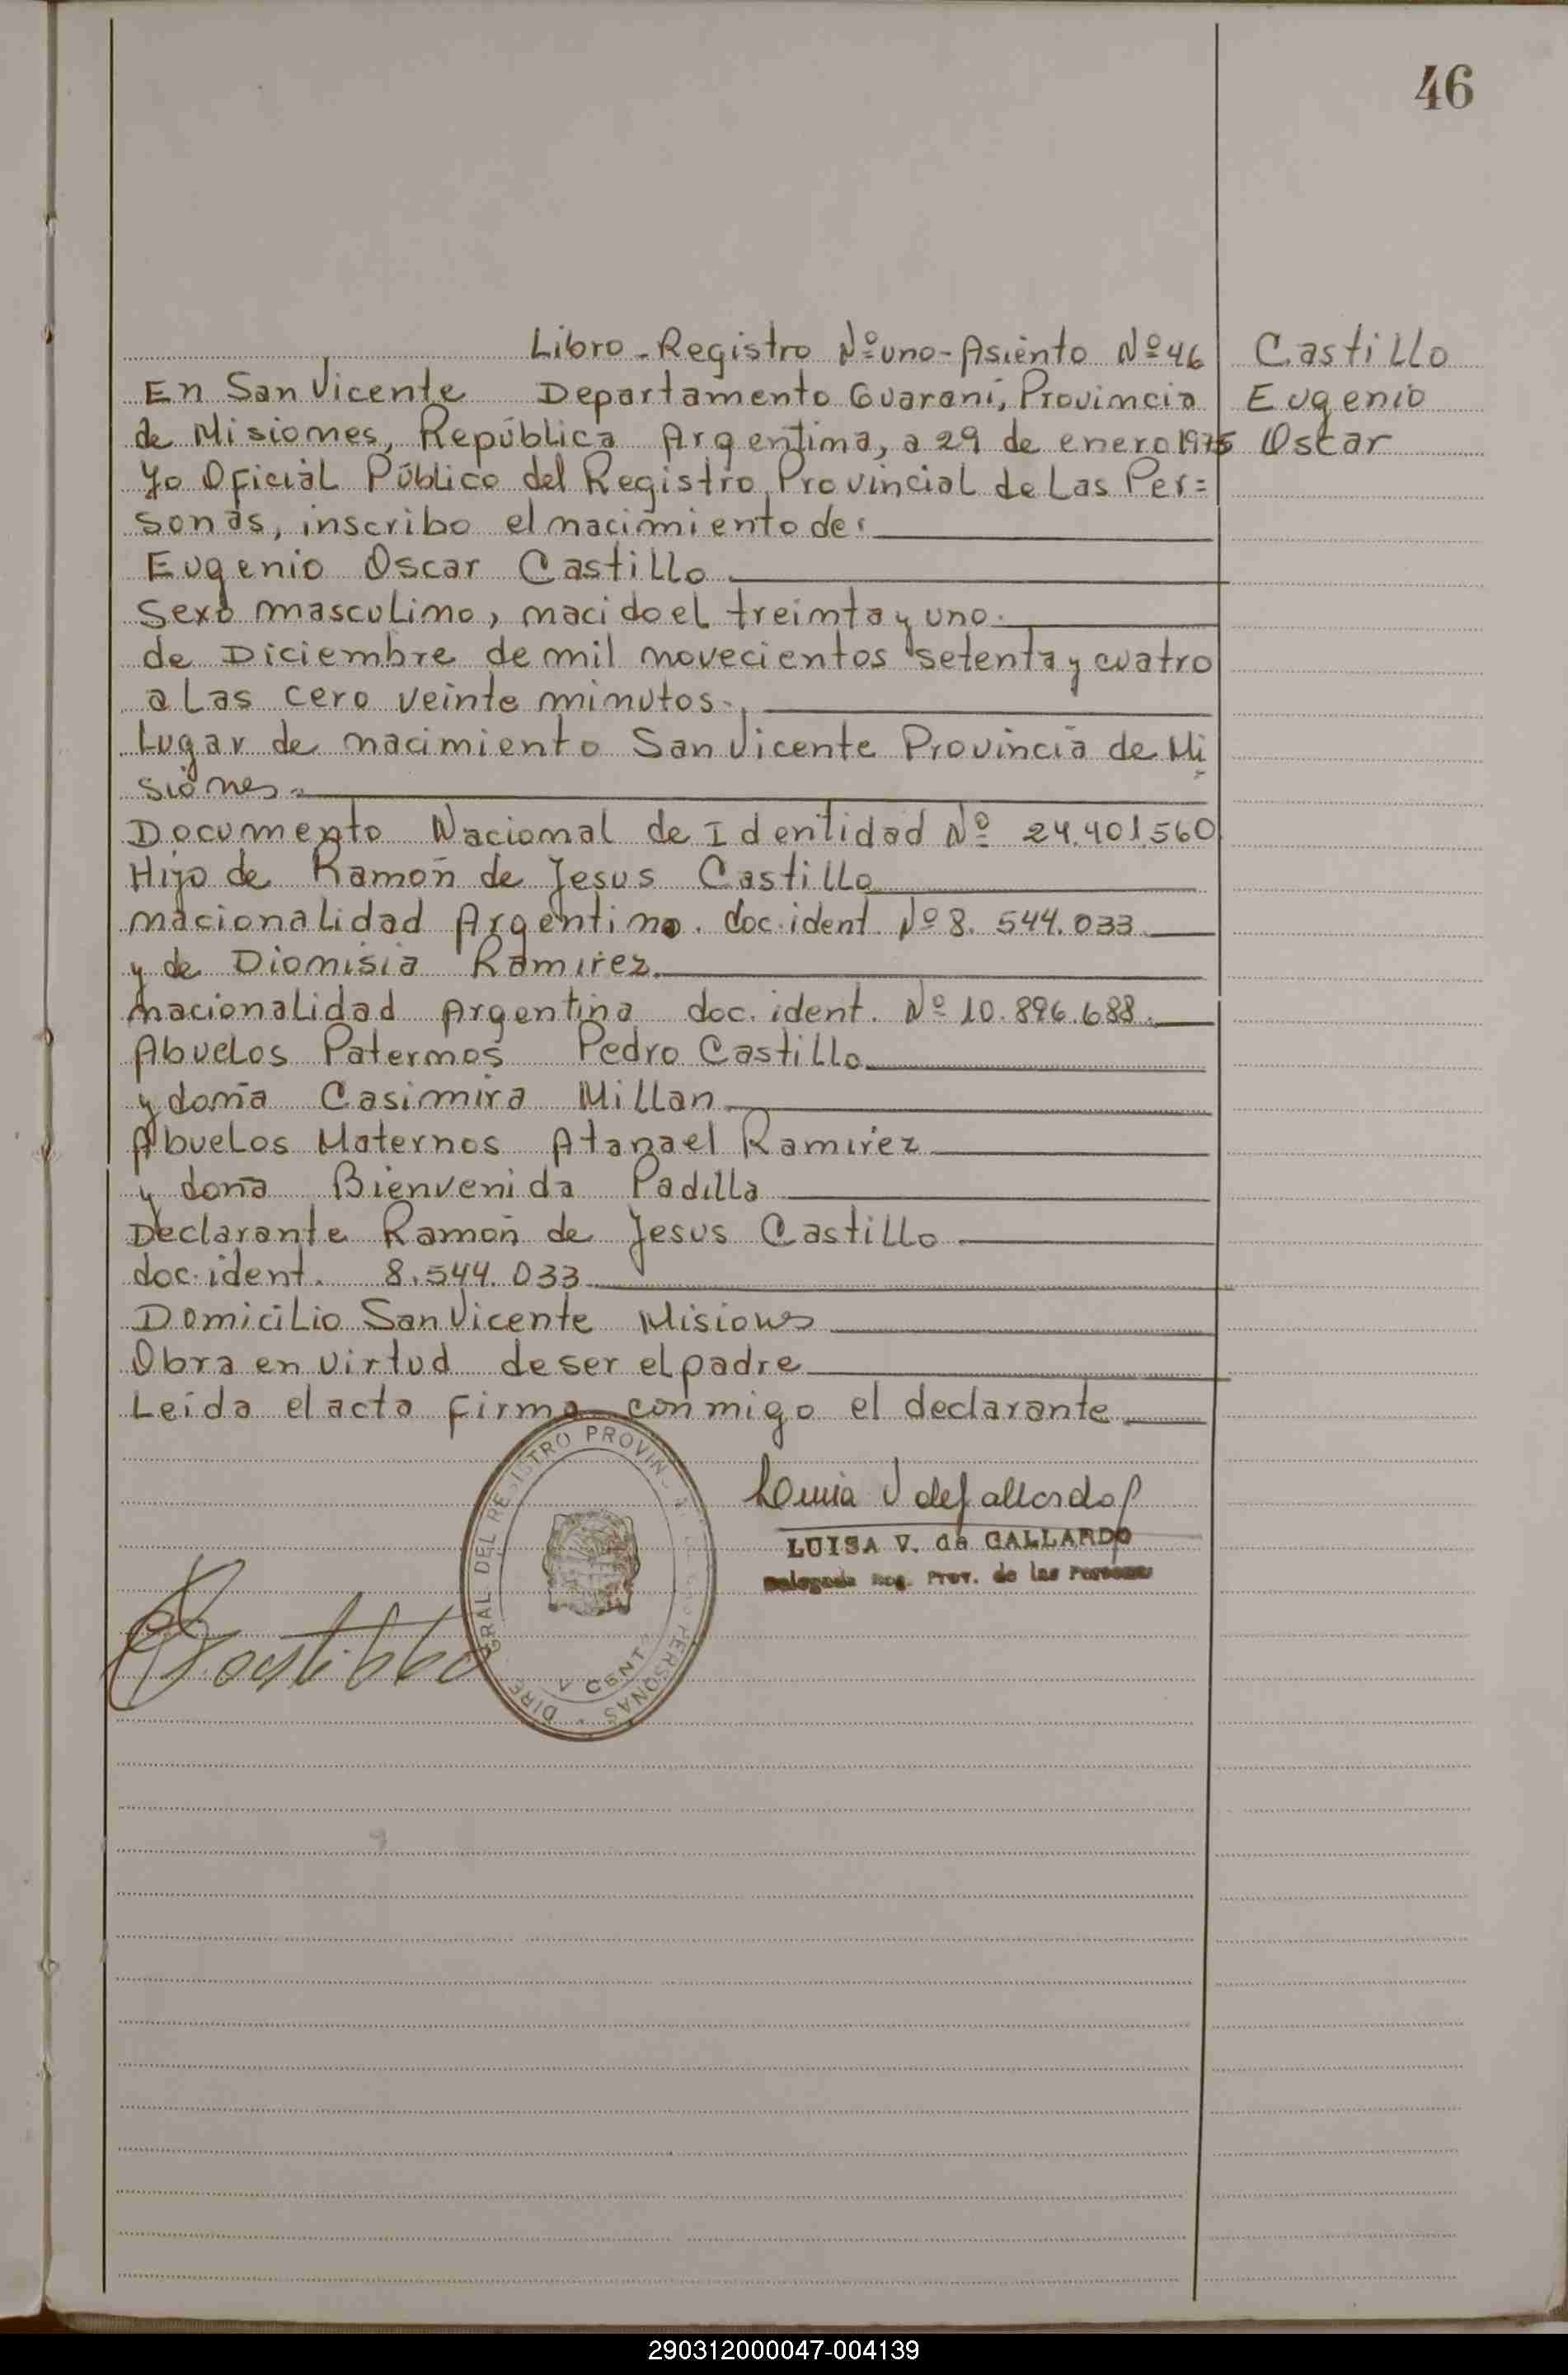 46
Libro - Registro Nº uno - Asiento Nº 46
Castillo
Eugenio
Oscar
En San Vicente Departamento Guaraní, Provincia
de Misiones, República Argentina, a 29 de enero 1975
Yo Oficial Público del Registro Provincial de Las Per=
sonas, inscribo el nacimiento de:
Eugenio Oscar Castillo
Sexo masculino, nacido el treinta y uno.
de Diciembre de mil novecientos setenta y cuatro
a Las cero veinte minutos.
Lugar de nacimiento San Vicente Provincia de Mi
siones.
Documento Nacional de Identidad Nº 24.401.560
Hijo de Ramón de Jesus Castillo
nacionalidad Argentino. doc. ident. Nº 8.544.033
y de Dionisia Ramirez.
nacionalidad Argentina doc. ident. Nº 10.896.688.
Abuelos Paternos Pedro Castillo
y doña Casimira Millan
Abuelos Maternos Atanael Ramirez
y doña Bienvenida Padilla
Declarante Ramón de Jesus Castillo
doc. ident. 8.544.033
Domicilio San Vicente Misiones
Obra en virtud de ser el padre
Leída el acta firma conmigo el declarante
Luisa V de Gallardo
LUISA V. de GALLARDO
Delegada Reg. Prov. de las Personas
Castillo
290312000047-004139